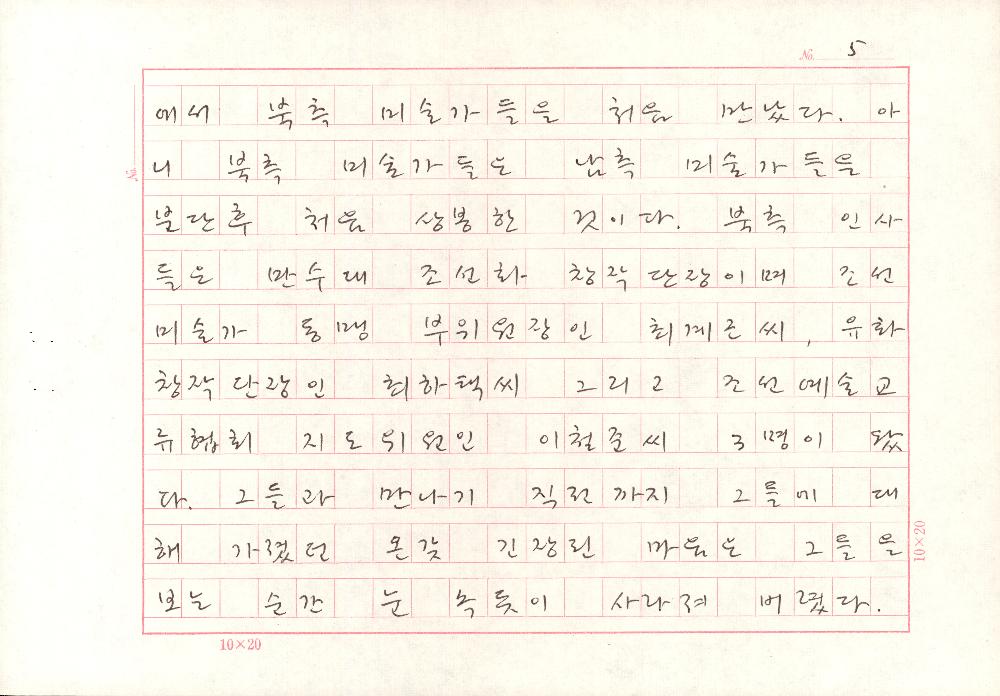 No. 5
에서 북측 미술가들을 처음 만났다. 아
니 북측 미술가들은 남측 미술가들을
분단후 처음 상봉한 것이다. 북측 인사
들은 만수대 조선화 창작단장이며 조선
미술가 동맹 부위원장인 최계근씨, 유화
창작단장인 최하택씨 그리고 조선예술교
류협회 지도위원인 이철준씨 3명이 왔
다. 그들과 만나기 직전까지 그들에 대
해 가졌던 온갖 긴장된 마음은 그들을
보는 순간 눈 녹듯이 사라져 버렸다.
No.
10×20
10×20